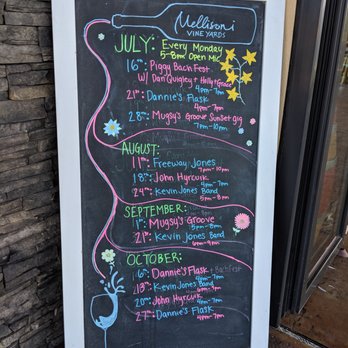 Mellisoni
VINEYARDS
JULY: Every Monday
5-8pm Open Mic
16th: Piggy Bach Fest
w/ Dan Quigley + Holly + Grace
4pm-7pm
21st: Dannie's Flask
4pm-7pm
28th: Mugsy's Groove Sunset gig
7pm-10pm
AUGUST:
11th: Freeway Jones
7pm-10pm
18th: John Hyrcwik
4pm-7pm
24th: Kevin Jones Band
5pm-8pm
SEPTEMBER:
1st: Mugsy's Groove
5pm-8pm
21st: Kevin Jones Band
6pm-9pm
OCTOBER:
6th: Dannie's Flask + Bach Fest
4pm-7pm
13th: Kevin Jones Band
6pm-9pm
20th: John Hyrcwik
4pm-7pm
27th: Dannie's Flask
4pm-7pm